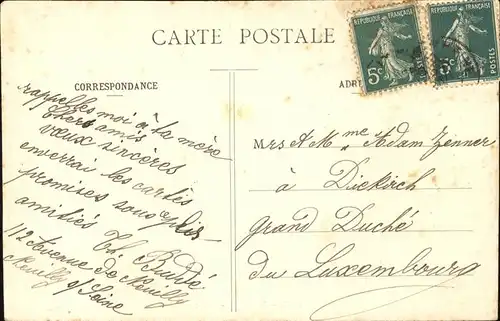 CARTE POSTALE
RÉPUBLIQUE FRANÇAISE
5c
RÉPUBLIQUE FRANÇAISE
5c
POSTES
CORRESPONDANCE
ADR
rappelles moi à ta mère
chers amis
vœux sincères
enverrai les cartes
promises sous plis
amitiés
Ch.
112 Avenue de Neuilly
Neuilly s/ Seine
Mrs A Mme Adam Zenner
à Diekirch
Grand Duché
du Luxembourg